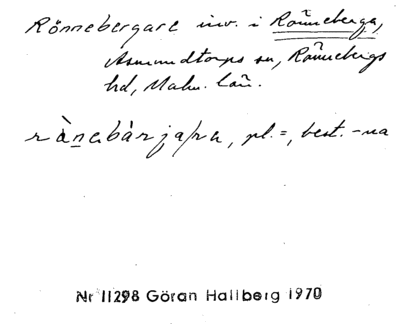 Rönnebergare inv. i Rönneberga,
Asmundtorps sn, Rönnebergs
hd, Malm. län.
rànebàrjara, pl. =, best. -na
Nr 11298 Göran Hallberg 1970